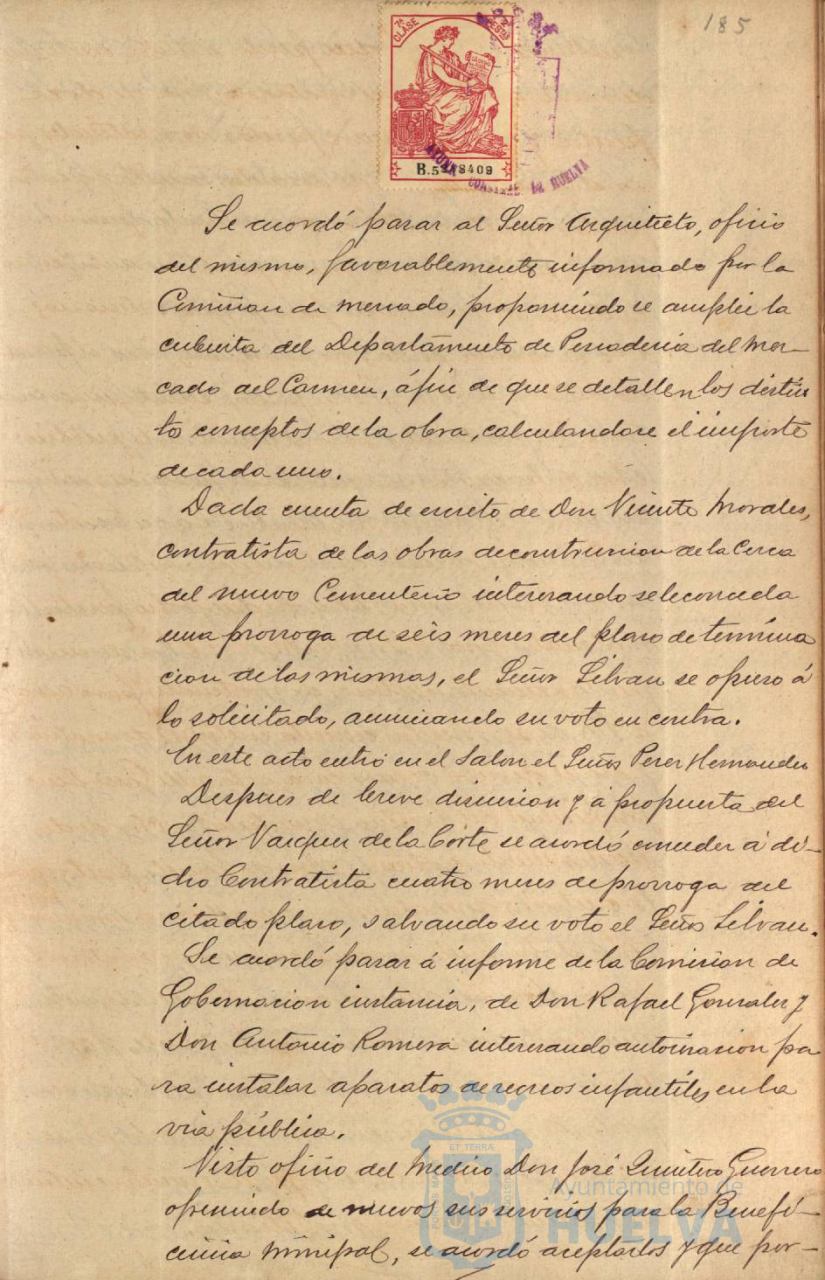 185
7ª CLASE
B.5 8409
AYUNT CONSTNAL DE HUELVA
Se acordó pasar al Señor Arquitecto, oficio
del mismo, favorablemente informado por la
Comision de mercado, proponiendo se amplie la
cubierta del Departamento de Pescaderia del Mer-
cado del Carmen, á fin de que se detallen los distin
to conceptos de la obra, calculandose el importe
de cada uno.
Dada cuenta de escrito de Don Vicente Morales,
contratista de las obras de construccion de la Cerca
del nuevo Cementerio interesando se le conceda
una prorroga de seis meses del plazo de termina
cion de las mismas, el Señor Silvan se opuso á
lo solicitado, anunciando su voto en contra.
En este acto entró en el Salon el Señor Perez Hernandez
Despues de breve discusion y á propuesta del
Señor Vazquez de la Corte se acordó conceder á di-
cho Contratista cuatro meses de prorroga del
citado plazo, salvando su voto el Señor Silvan.
Se acordó pasar á informe de la Comision de
Gobernacion instancia, de Don Rafael Gonzalez y
Don Antonio Romera interesando autorizacion pa
ra instalar aparatos de recreos infantiles en la
via pública.
Visto oficio del Medico Don José Quintero Guerrero
ofreciendo de nuevos sus servicios para la Benefi-
ciencia municipal, se acordó aceptarlos y que por-
Ayuntamiento de
HUELVA